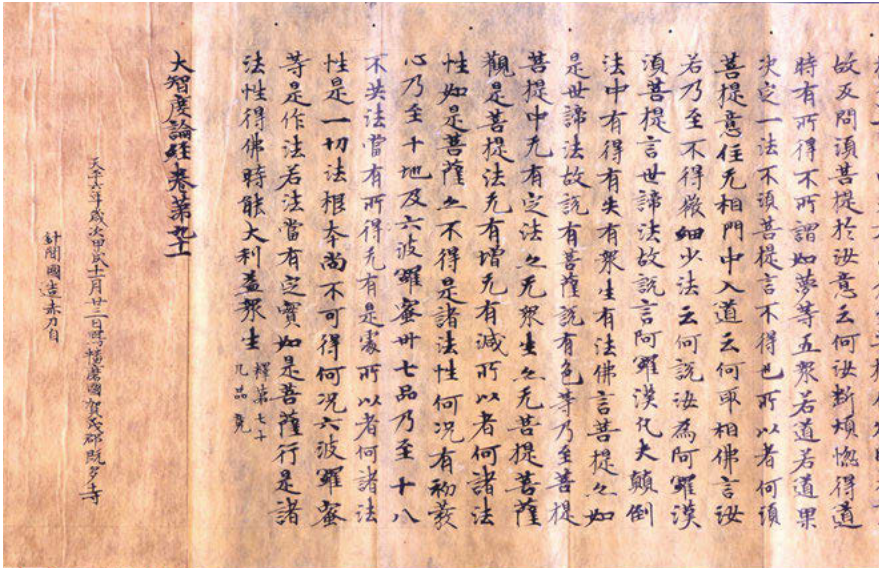 故反問須菩提於汝意云何汝斷煩惱得道
時有所得不所謂如夢等五衆若道若道果
决定一法不須菩提言不得也所以者何須
菩提意住无相門中入道云何取相佛言汝
若乃至不得微細少法云何說汝為阿羅漢
須菩提言世諦法故說言阿羅漢化夫顛倒
法中有得有失有衆生有法佛言菩提亦如
是世諦法故說有菩薩說有色等乃至菩提
菩提中无有定法亦无衆生亦无菩提菩薩
觀是菩提法无有增无有減所以者何諸法
性如是菩薩亦不得是諸法性何况有初發
心乃至十地及六波羅蜜卅七品乃至十八
不共法當有所得无有是處所以者何諸法
性是一切法根本尚不可得何况六波羅蜜
等是作法若法當有定實如是菩薩行是諸
法性得佛時能大利益衆生 釋第七十
九品竟
大智度論経卷第九十一
天平六年歲次甲戌十一月廿三日寫播磨國賀茂郡既多寺
針間國造赤刀自